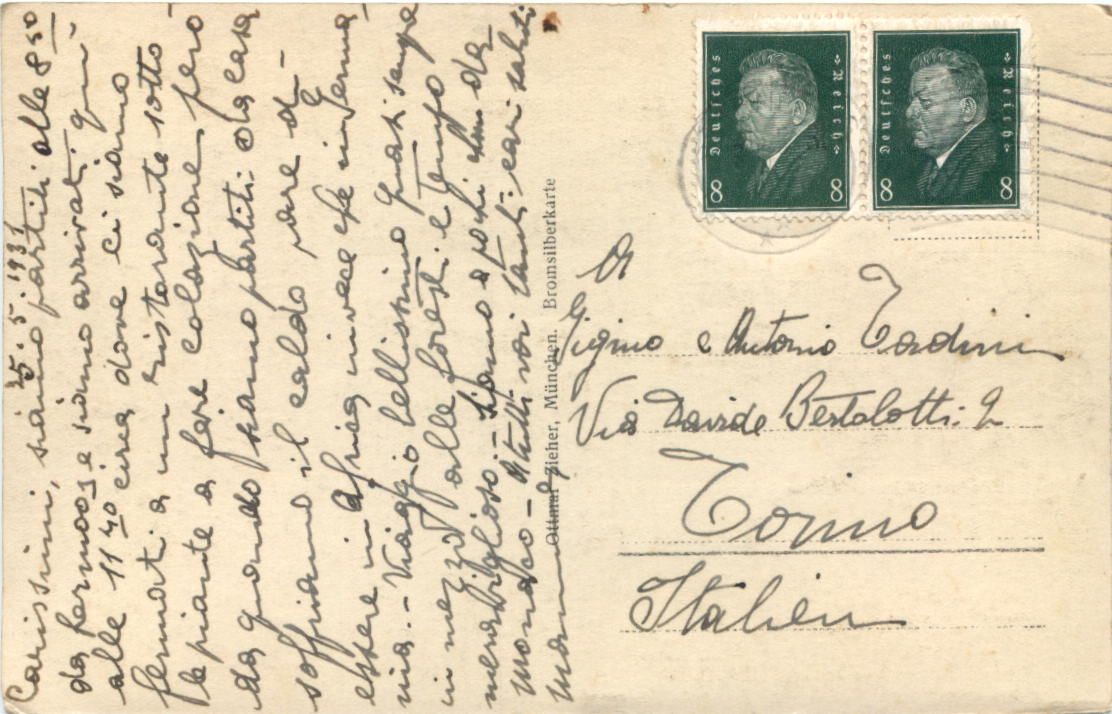 25.5.1931
Carissimi, siamo partiti alle 8 30
da fermoos e siamo arrivati qui
alle 11 40 circa dove ci siamo
fermati a un ristorante sotto
le piante a fare colazione, però
da quando siamo partiti da casa
soffriamo il caldo pare di
essere in Africa invece che in Germa
nia. - Viaggio bellissimo quasi sempre
in mezzo alle foreste e tempo
meraviglioso - siamo a pochi da
monaco - A tutti voi tanti cari saluti
Ottmar Zieher, München. Bromsilberkarte
Deutsches Reich
8 8
Deutsches Reich
8 8
A
Gigino e Antonio Tadini
Via Davide Bertolotti. 2
Torino
Italien